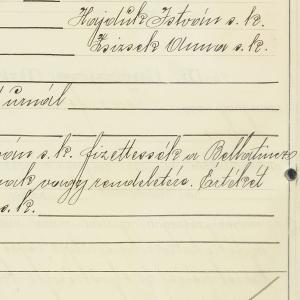 Hajdúk István s. k.
Zsizsek Anna s. k.
úrnál
ván s. k. fizettessék a Bellatincz
nak vagy rendeletére. Értékét
s. k.